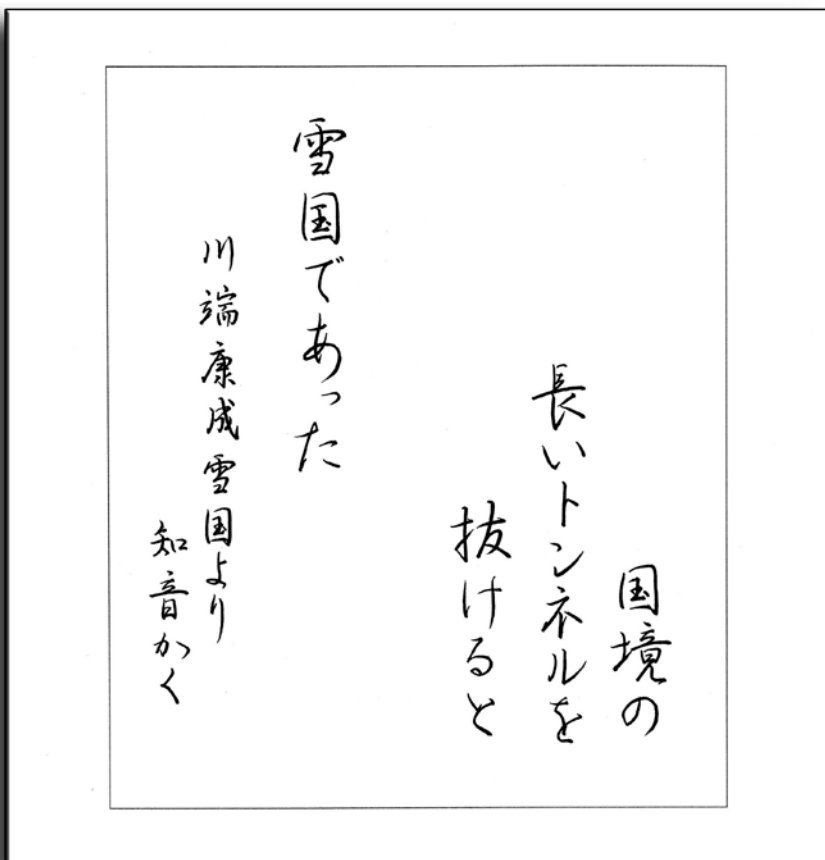 国境の
長いトンネルを
抜けると
雪国であった
川端康成雪国より
知音かく